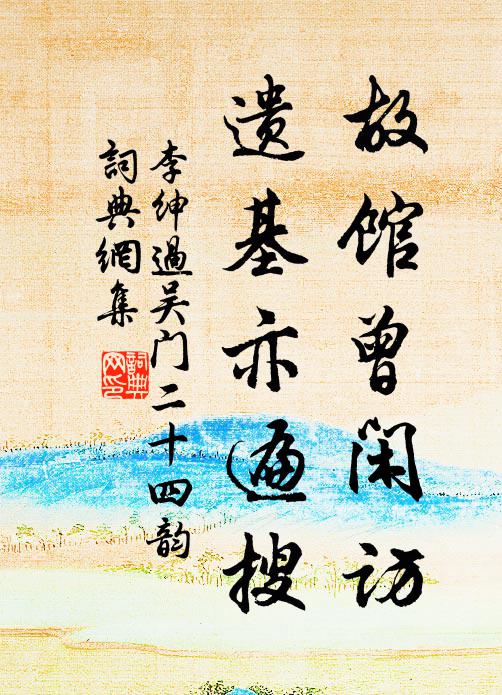 故馆曾闲访
遗基亦遍搜
李绅過吴门二十四韵
詞典網集
詞典网印